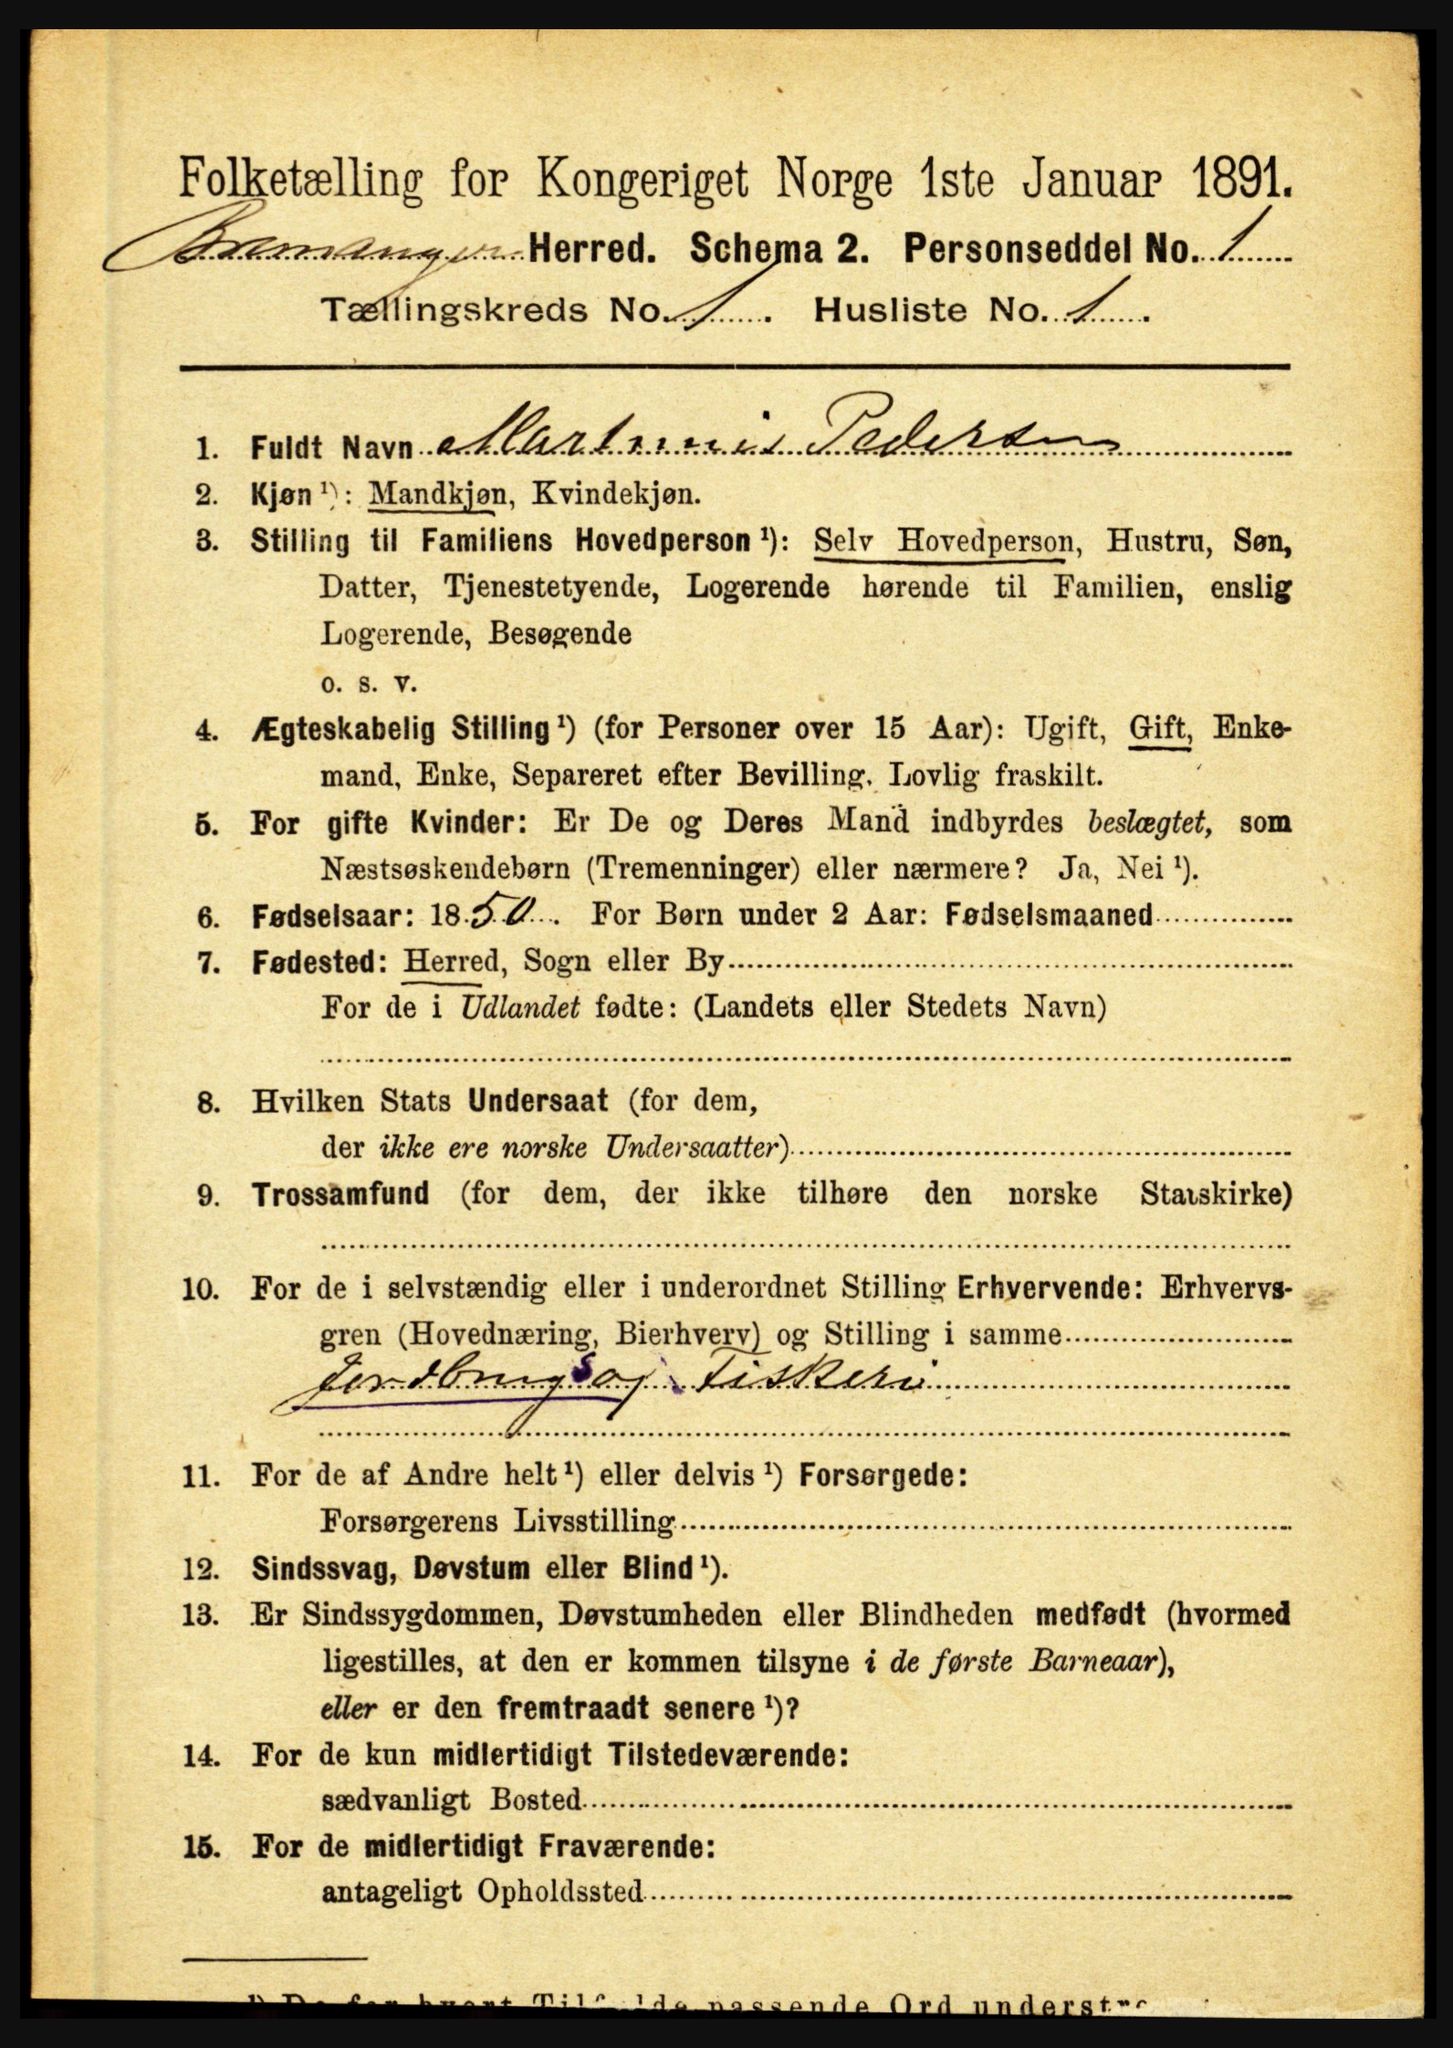 Folketælling for Kongeriget Norge 1ste Januar 1891.
Bremanger Herred. Schema 2. Personseddel No. 1
Tællingskreds No. 1. Husliste No. 1.
1. Fuldt Navn Martinus Pedersen
2. Kjøn ¹): Mandkjøn, Kvindekjøn.
3. Stilling til Familiens Hovedperson ¹): Selv Hovedperson, Hustru, Søn,
Datter, Tjenestetyende, Logerende hørende til Familien, enslig
Logerende, Besøgende
o. s. v.
4. Ægteskabelig Stilling ¹) (for Personer over 15 Aar): Ugift, Gift, Enke-
mand, Enke, Separeret efter Bevilling. Lovlig fraskilt.
5. For gifte Kvinder: Er De og Deres Mand indbyrdes beslægtet, som
Næstsøskendebørn (Tremenninger) eller nærmere? Ja, Nei ¹).
6. Fødselsaar: 1850. For Børn under 2 Aar: Fødselsmaaned
7. Fødested: Herred, Sogn eller By
For de i Udlandet fødte: (Landets eller Stedets Navn)
8. Hvilken Stats Undersaat (for dem,
der ikke ere norske Undersaatter)
9. Trossamfund (for dem, der ikke tilhøre den norske Statskirke)
10. For de i selvstændig eller i underordnet Stilling Erhvervende: Erhvervs-
gren (Hovednæring, Bierhverv) og Stilling i samme
Jordbrugs og Fiskeri
11. For de af Andre helt ¹) eller delvis ¹) Forsørgede:
Forsørgerens Livsstilling
12. Sindssvag, Døvstum eller Blind ¹).
13. Er Sindssygdommen, Døvstumheden eller Blindheden medfødt (hvormed
ligestilles, at den er kommen tilsyne i de første Barneaar),
eller er den fremtraadt senere ¹)?
14. For de kun midlertidigt Tilstedeværende:
sædvanligt Bosted
15. For de midlertidigt Fraværende:
antageligt Opholdssted
¹) De for hvert Tilfælde passende Ord understre